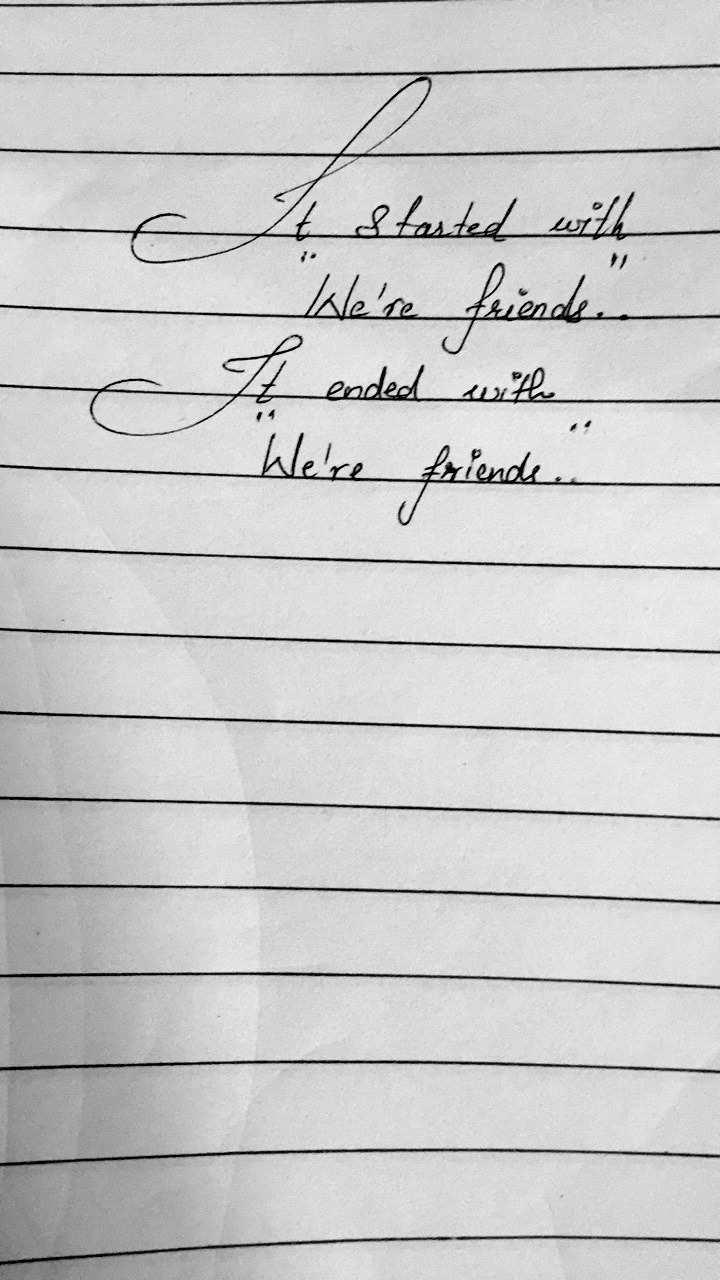 It started with
"We're friends.."
It ended with
"We're friends.."